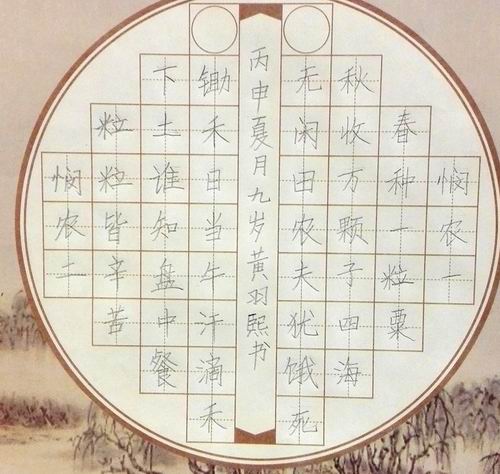 悯农一
春种一粒粟
秋收万颗子四海
无闲田农夫犹饿死
丙申夏月九岁黄羽熙书
锄禾日当午汗滴禾
下土谁知盘中餐
粒粒皆辛苦
悯农二